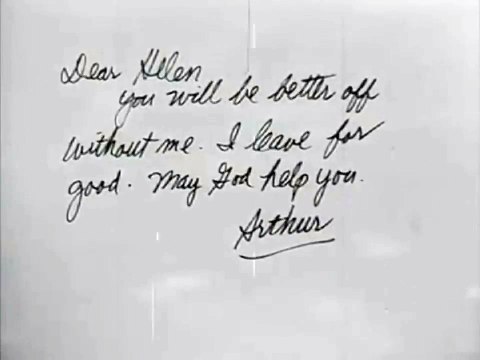 Dear Helen
you will be better off
without me. I leave for
good. May God help you.
Arthur